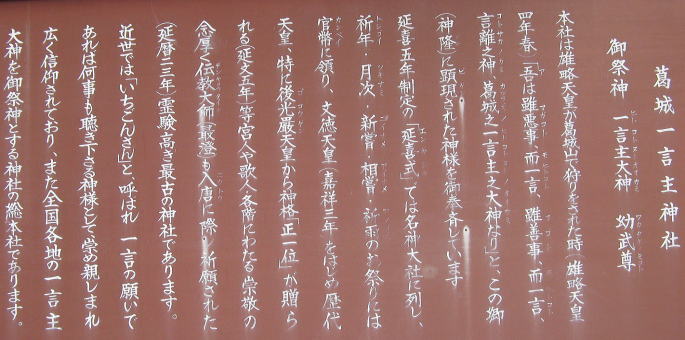 葛城一言主神社
御祭神 一言主大神 幼武尊
本社は雄略天皇が葛城山で狩りをされた時(雄略天皇
四年春)「吾は雖悪事、而一言、雖善事、而一言、
言離之神、葛城之一言主之大神なり」と、この御
(神降)に顕現された神様を御奉斎しています
延喜五年制定の「延喜式」では名神大社に列し、
祈年・月次・新嘗・相嘗・祈雨のお祭りには
官幣に預り、文徳天皇(嘉祥三年)をはじめ歴代
天皇、特に後光厳天皇から神格「正一位」が贈ら
れる(延文五年)等宮人や歌人各階にわたる崇敬の
念厚く伝教大師(最澄)も入唐に際し祈願された
(延暦二三年)霊験高き最古の神社であります。
近世では「いちごんさん」と、呼ばれ 一言の願いで
あれは何事も聴き下さる神様として崇め親しまれ
広く信仰されており、また全国各地の一言主
大神を御祭神とする神社の総本社であります。